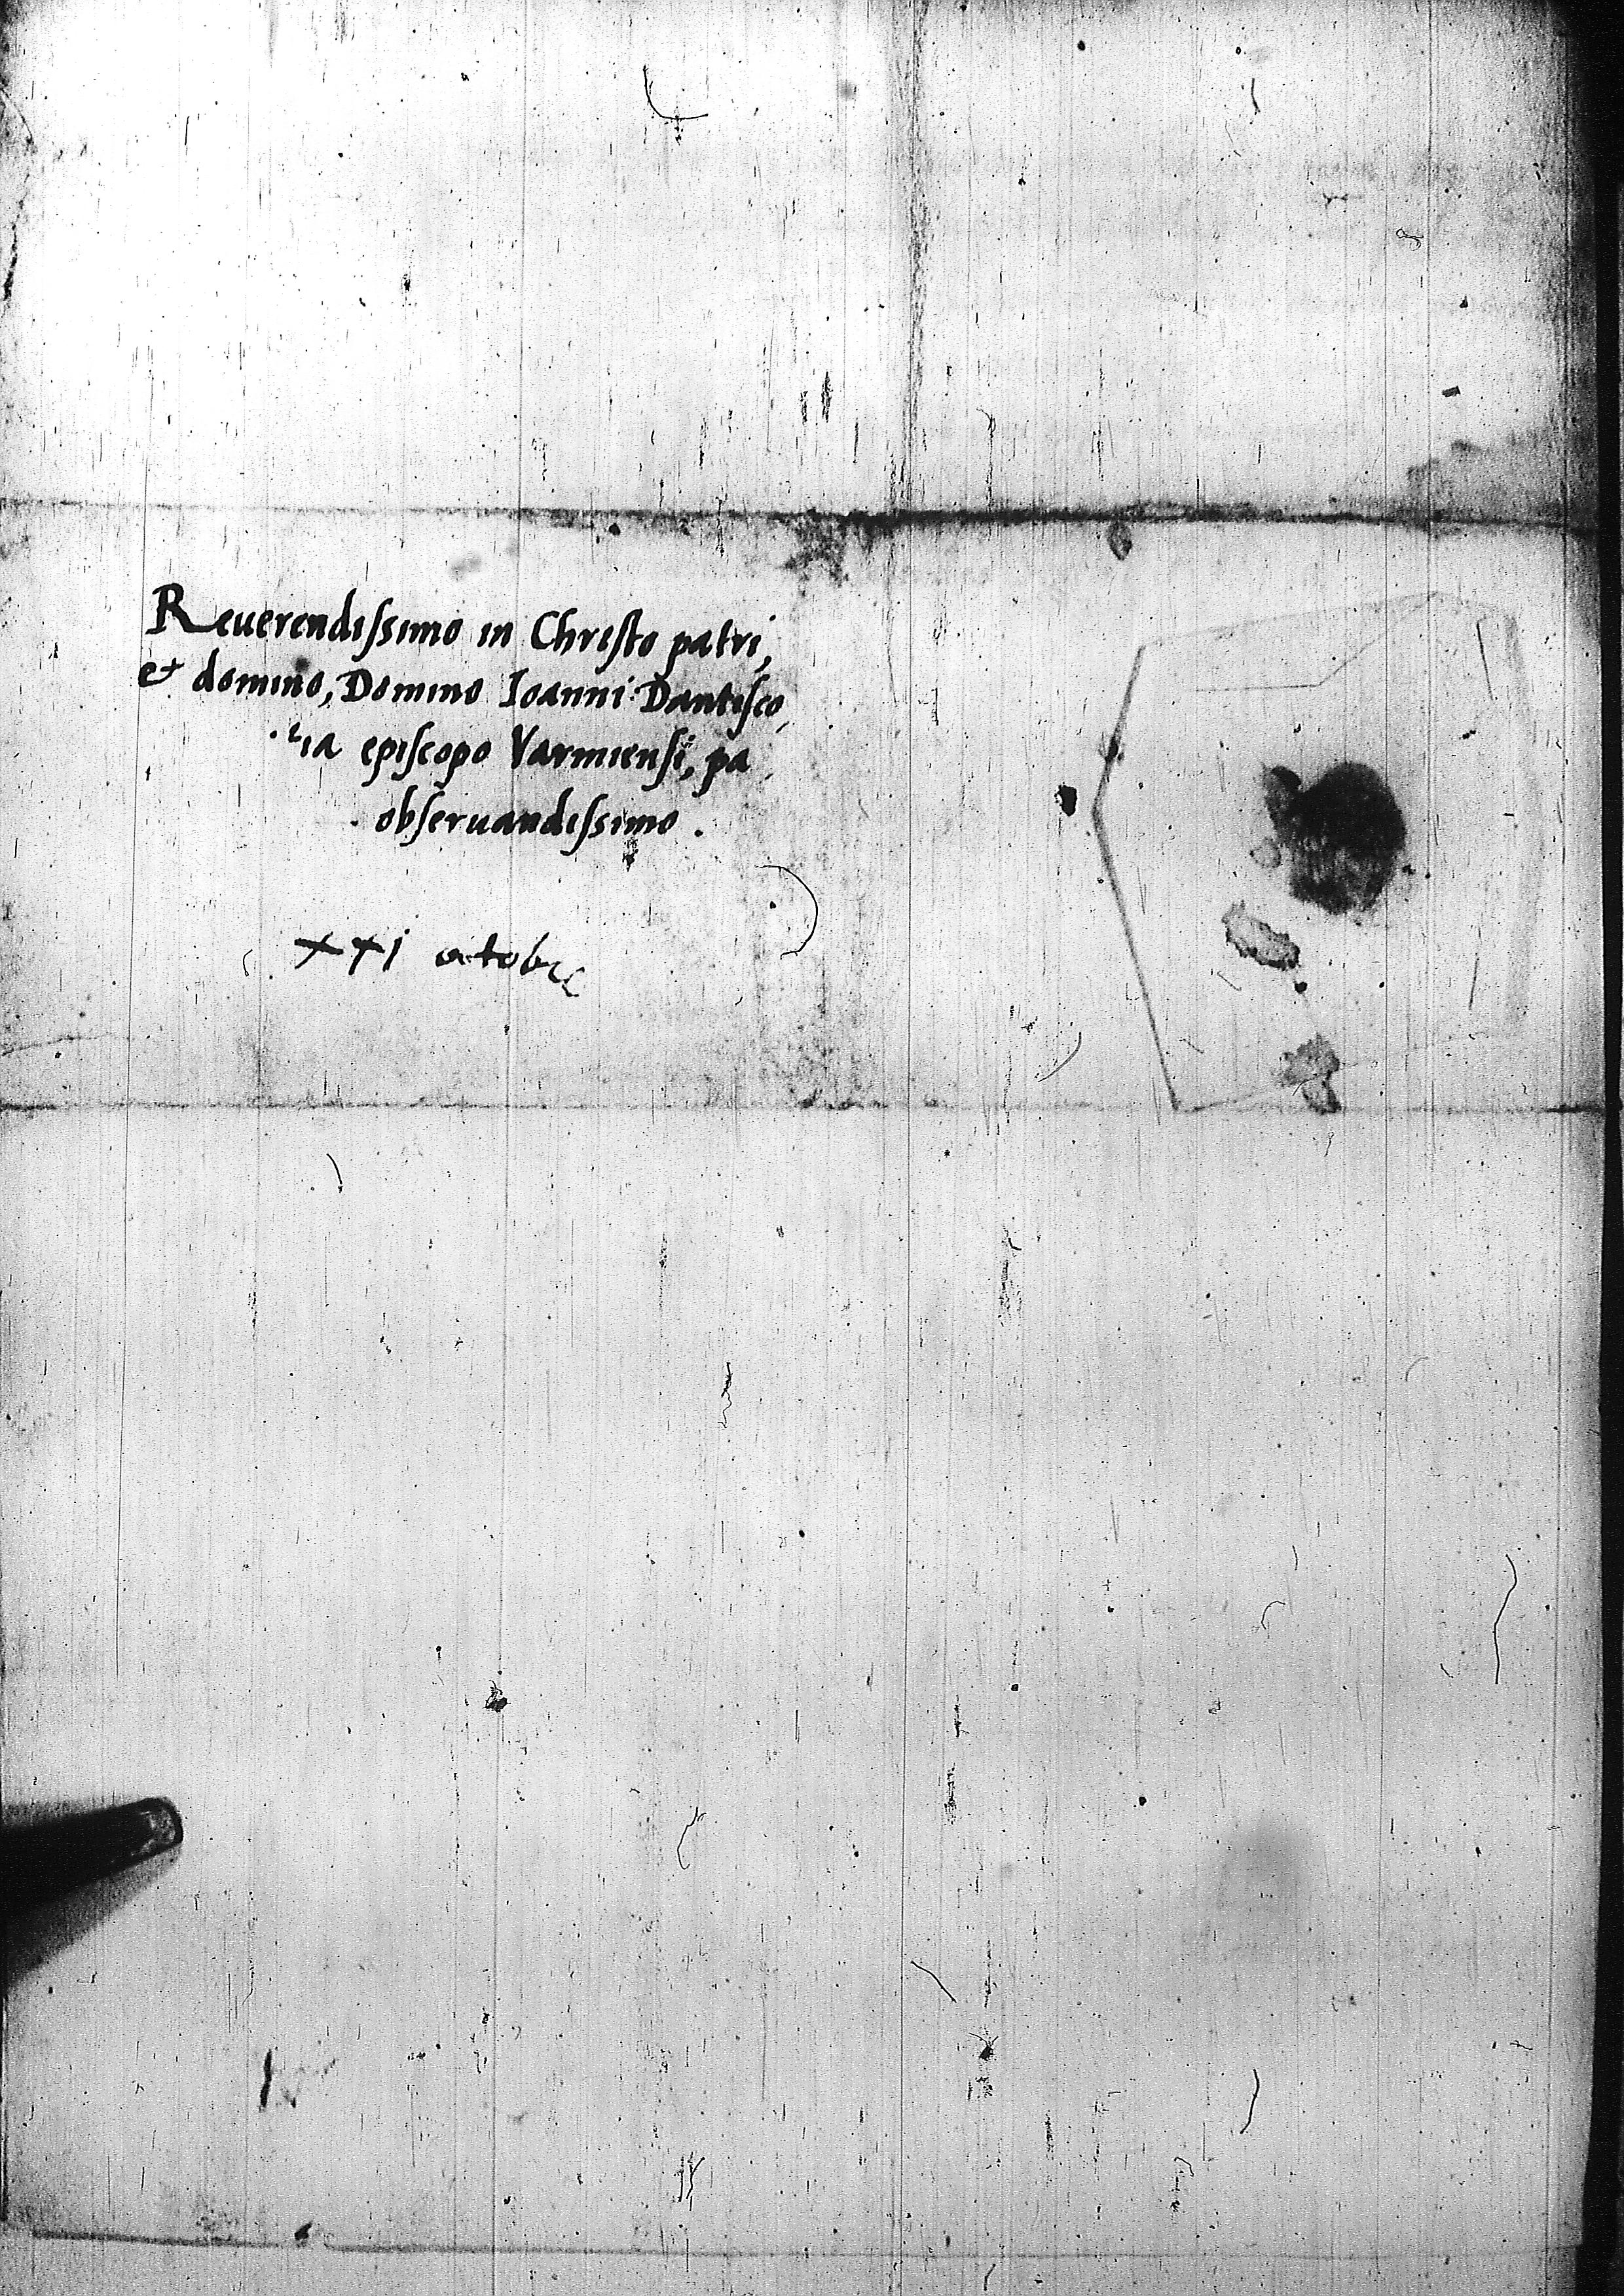 Reuerendiſsimo in Chriſto patri,
et domino, Domino Ioanni Dantiſco,
epiſcopo Varmienſi, pa
obſeruandiſsimo.
xxj octobris